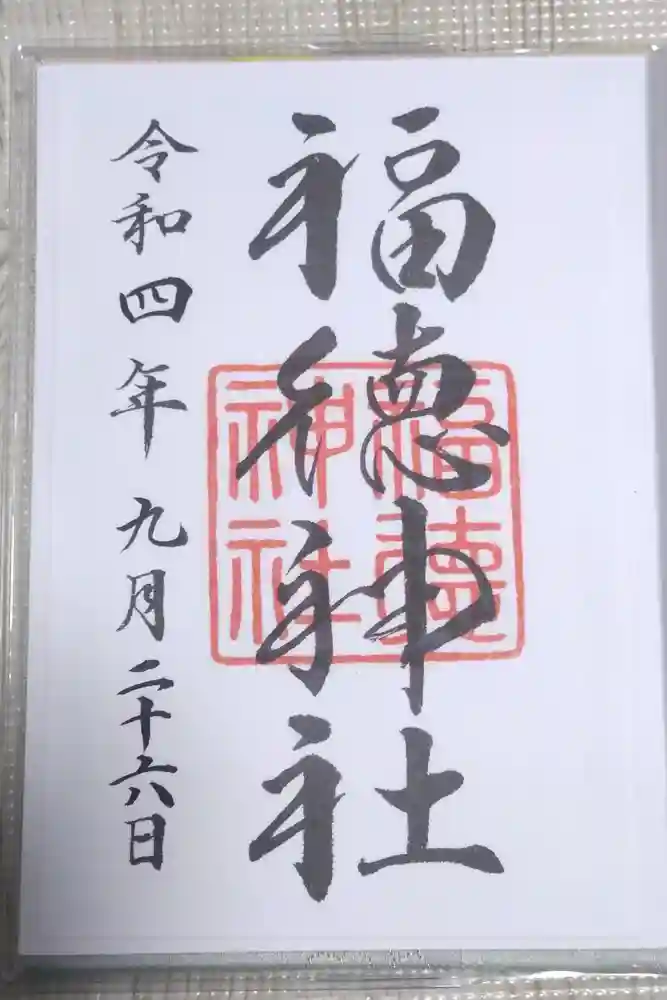 福徳神社
福徳
神社
令和四年九月二十六日